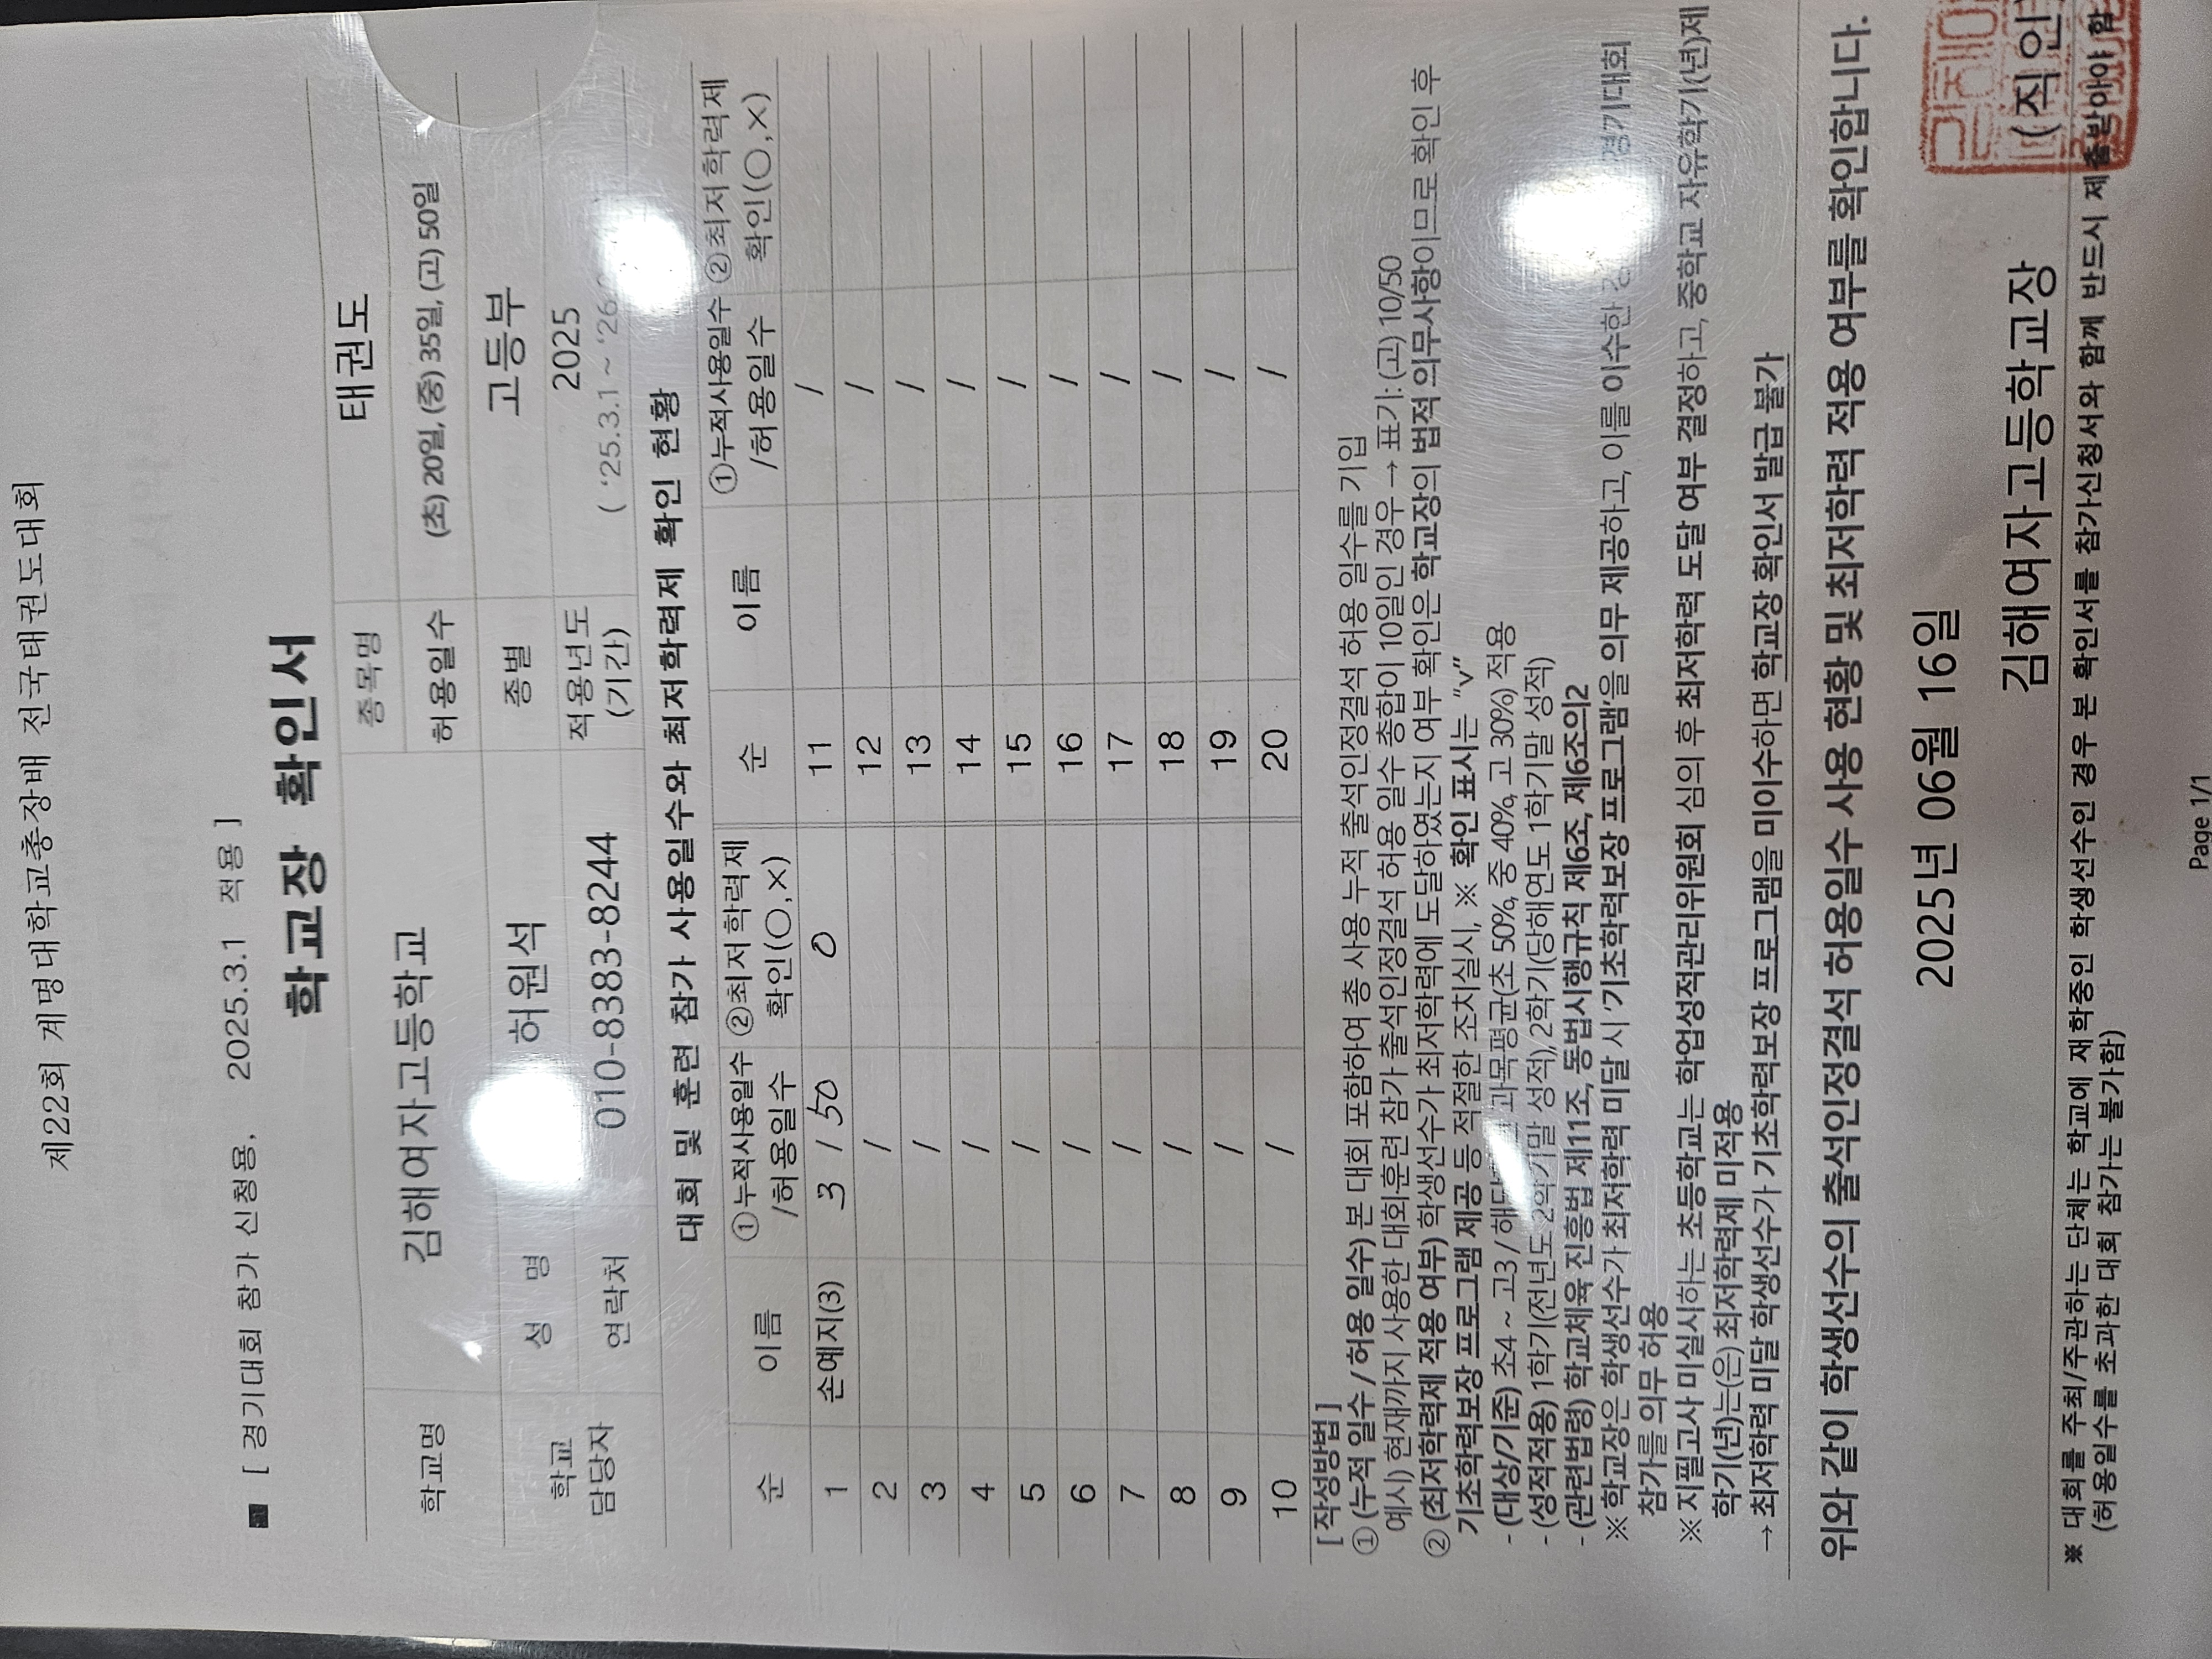 제22회 계명대학교총장배 전국태권도대회
■ [ 경기대회 참가 신청용, 2025.3.1 적용 ]
학교장 확인서
학교명 김해여자고등학교 종목명 태권도
허용일수 (초) 20일, (중) 35일, (고) 50일
학교 담당자 성 명 허원석 종별 고등부
연락처 010-8383-8244 적용년도 (기간) 2025
( '25.3.1 ~ '26.
대회 및 훈련 참가 사용일수와 최저학력제 확인 현황
순 이름 ①누적사용일수 /허용일수 ②최저학력제 확인(○,×) 순 이름 ①누적사용일수 /허용일수 ②최저학력제 확인(○,×)
1 손예지(3) 3 / 50 0 11 /
2 / 12 /
3 / 13 /
4 / 14 /
5 / 15 /
6 / 16 /
7 / 17 /
8 / 18 /
9 / 19 /
10 / 20 /
[ 작성방법 ]
① (누적 일수 / 허용 일수) 본 대회 포함하여 총 사용 누적 출석인정결석 허용 일수를 기입
예시) 현재까지 사용한 대회·훈련 참가 출석인정결석 허용 일수 총합이 10일인 경우 → 표기 : (고) 10/50
② (최저학력제 적용 여부) 학생선수가 최저학력에 도달하였는지 여부 확인은 학교장의 법적 의무사항이므로 확인 후
기초학력보장 프로그램 제공 등 적절한 조치실시, ※ 확인 표시는 "v"
- (대상/기준) 초4 ~ 고3 / 과목평균(초 50%, 중 40%, 고 30%) 적용
- (성적적용) 1학기(전년도 2학기말 성적), 2학기(당해연도 1학기말 성적)
- (관련법령) 학교체육 진흥법 제11조, 동법시행규칙 제6조, 제6조의2
※ 학교장은 학생선수가 최저학력 미달 시 '기초학력보장 프로그램'을 의무 제공하고, 이를 이수한 경기대회
참가를 의무 허용
※ 지필고사 미실시하는 초등학교는 학업성적관리위원회 심의 후 최저학력 도달 여부 결정하고, 중학교 자유학기(년)제
학기(년)는(은) 최저학력제 미적용
→ 최저학력 미달 학생선수가 기초학력보장 프로그램을 미이수하면 학교장 확인서 발급 불가
위와 같이 학생선수의 출석인정결석 허용일수 사용 현황 및 최저학력 적용 여부를 확인합니다.
2025년 06월 16일
김해여자고등학교장 (직인)
※ 대회를 주최/주관하는 단체는 학교에 재학중인 학생선수인 경우 본 확인서를 참가신청서와 함께 반드시 제출받아야 함
(허용일수를 초과한 대회 참가는 불가함)
Page 1/1